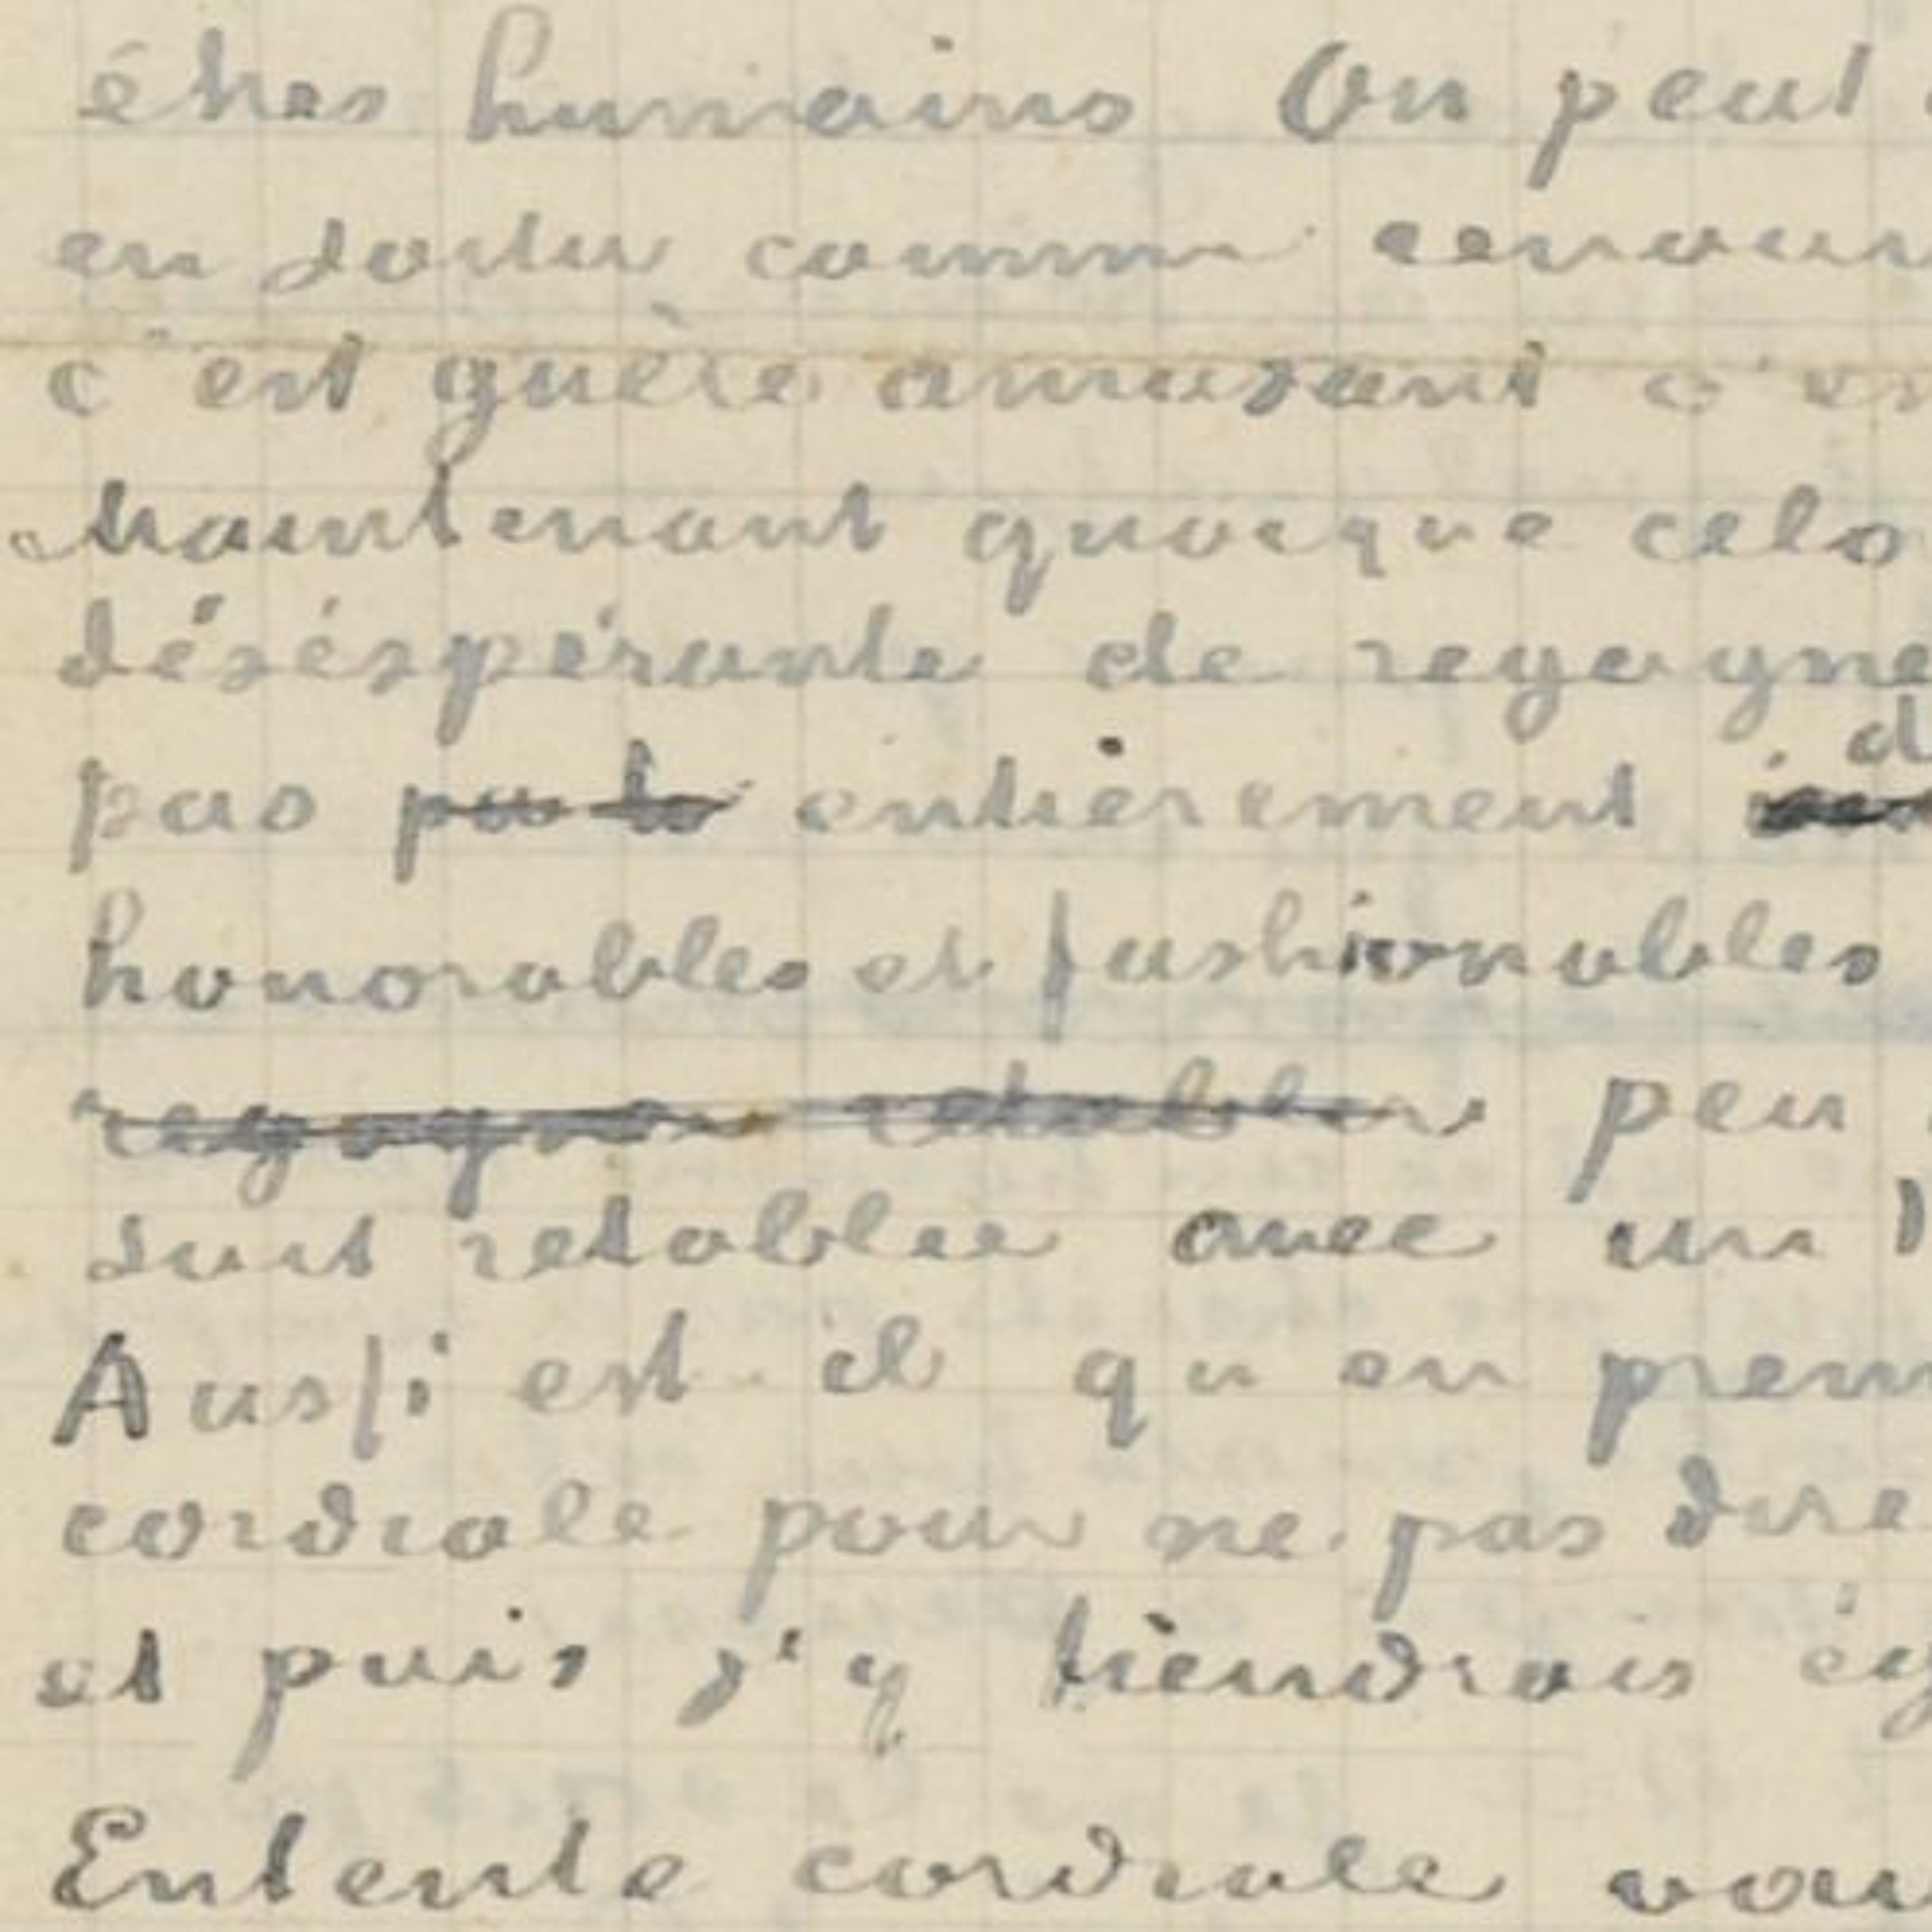 êtres humains On peut
en sortir comme
c'est guère amusant c'es
Maintenant quoique cela
désésperante de regagne
pas entièrement
honorables et fashionables
regagner retablir peu
soit retablie avec un
Aussi est-il qu en prem
cordiale pour ne pas dire
et puis j'y tiendrais ég
Entente cordiale vou